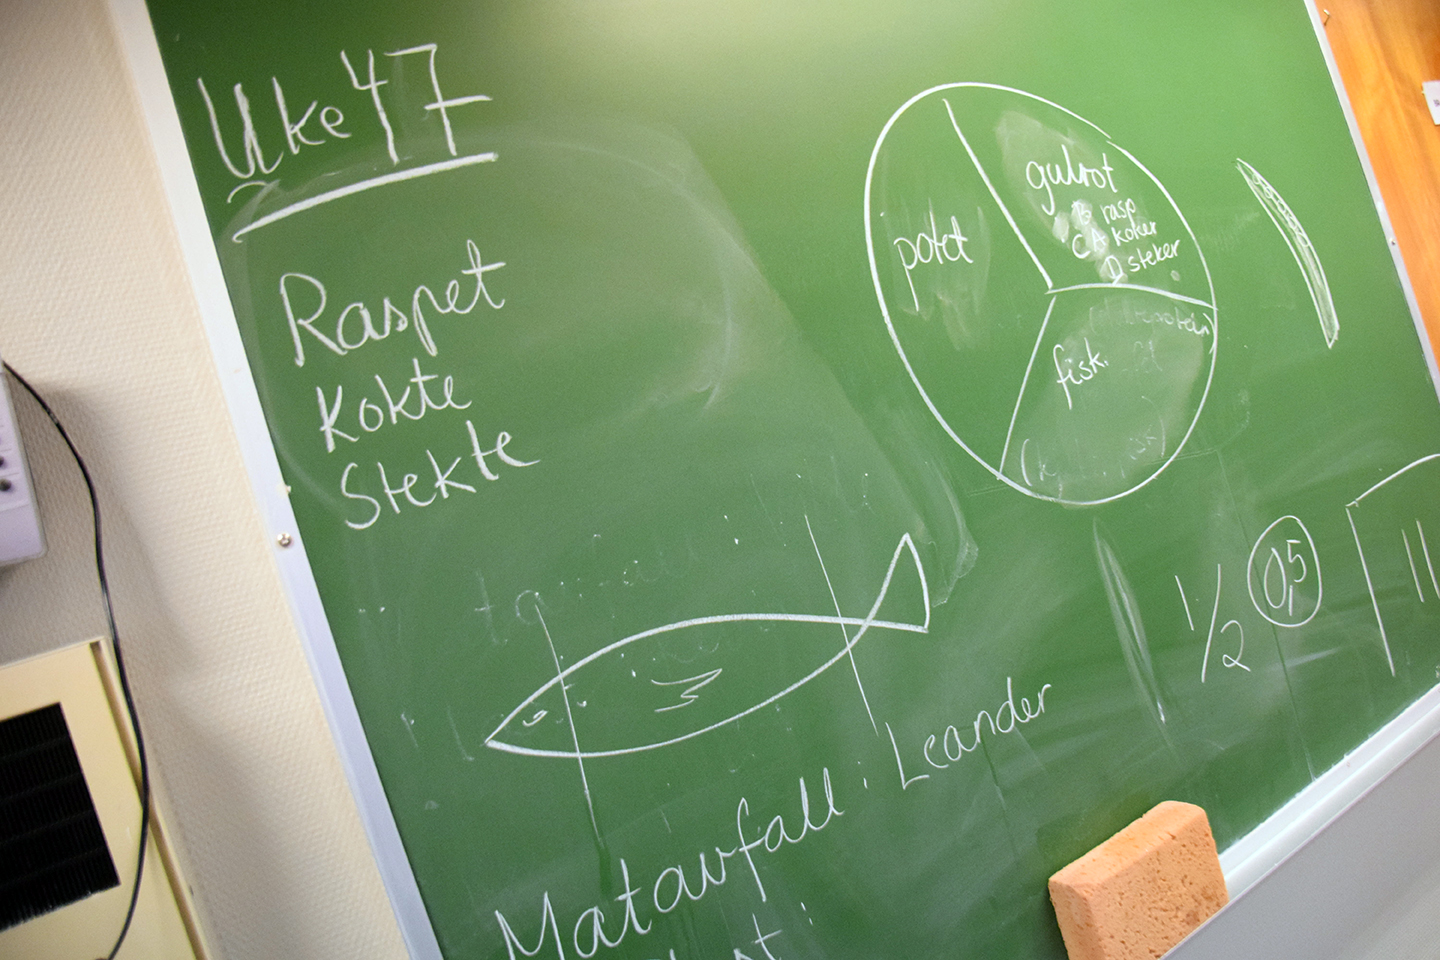 Uke 47
Raspet
Kokte
Stekte
potet
gulrot
B rasp
C A koker
D steker
fisk.
1/2
0,5
Matavfall : Leander